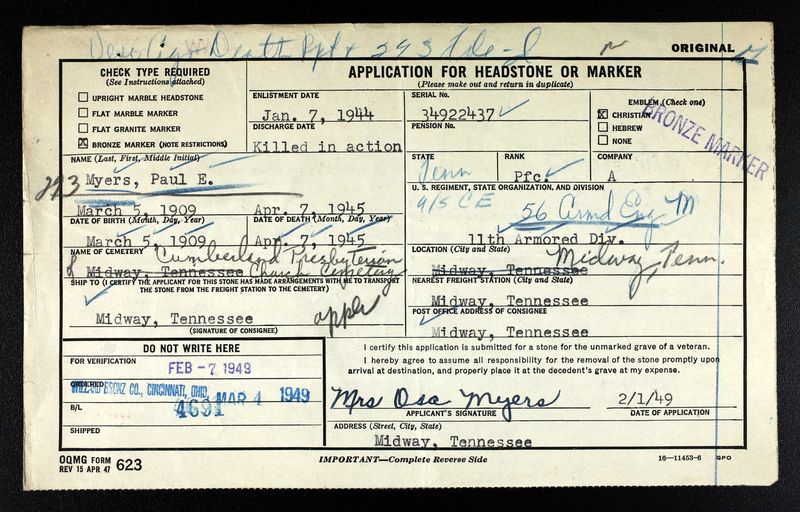 ORIGINAL
CHECK TYPE REQUIRED
(See Instructions attached)
UPRIGHT MARBLE HEADSTONE
FLAT MARBLE MARKER
FLAT GRANITE MARKER
X BRONZE MARKER (NOTE RESTRICTIONS)
APPLICATION FOR HEADSTONE OR MARKER
(Please make out and return in duplicate)
ENLISTMENT DATE
Jan. 7, 1944
DISCHARGE DATE
Killed in action
SERIAL NO.
34922437
PENSION NO.
EMBLEM (Check one)
X CHRISTIAN
HEBREW
NONE
BRONZE MARKER
NAME (Last, First, Middle Initial)
Myers, Paul E.
STATE
Tenn
RANK
Pfc.
COMPANY
A
March 5, 1909 Apr. 7, 1945
DATE OF BIRTH (Month, Day, Year) DATE OF DEATH (Month, Day, Year)
March 5, 1909 Apr. 7, 1945
U. S. REGIMENT, STATE ORGANIZATION, AND DIVISION
56 Armd Eng
11th Armored Div.
NAME OF CEMETERY
Cumberland Presbyterian
Midway, Tennessee Church Cemetery
LOCATION (City and State)
Midway, Tennessee
Midway, Tenn.
SHIP TO (I CERTIFY THE APPLICANT FOR THIS STONE HAS MADE ARRANGEMENTS WITH ME TO TRANSPORT
THE STONE FROM THE FREIGHT STATION TO THE CEMETERY)
Midway, Tennessee
(SIGNATURE OF CONSIGNEE)
NEAREST FREIGHT STATION (City and State)
Midway, Tennessee
POST OFFICE ADDRESS OF CONSIGNEE
Midway, Tennessee
DO NOT WRITE HERE
FOR VERIFICATION
FEB -7 1949
ORDERED
CINCINNATI, OHIO, MAR 4 1949
B/L
4691
SHIPPED
I certify this application is submitted for a stone for the unmarked grave of a veteran.
I hereby agree to assume all responsibility for the removal of the stone promptly upon
arrival at destination, and properly place it at the decedent's grave at my expense.
Mrs Osa Myers 2/1/49
APPLICANT'S SIGNATURE DATE OF APPLICATION
ADDRESS (Street, City, State)
Midway, Tennessee
OQMG FORM
REV 15 APR 47 623
IMPORTANT—Complete Reverse Side
16—11453-6 GPO